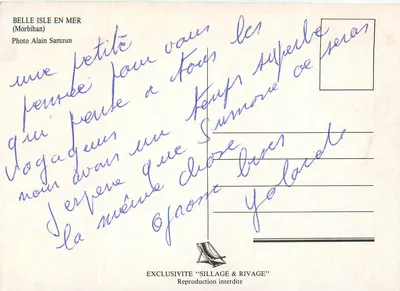 BELLE ISLE EN MER
(Morbihan)
Photo Alain Samzun
une petite
pensée pour vous
qui pense a tous les
Vogageurs
nous avons un temps superbe
J'espere que Simone ce seras
la même chose
Grosse bises
Yoland
EXCLUSIVITE "SILLAGE & RIVAGE"
Reproduction interdite